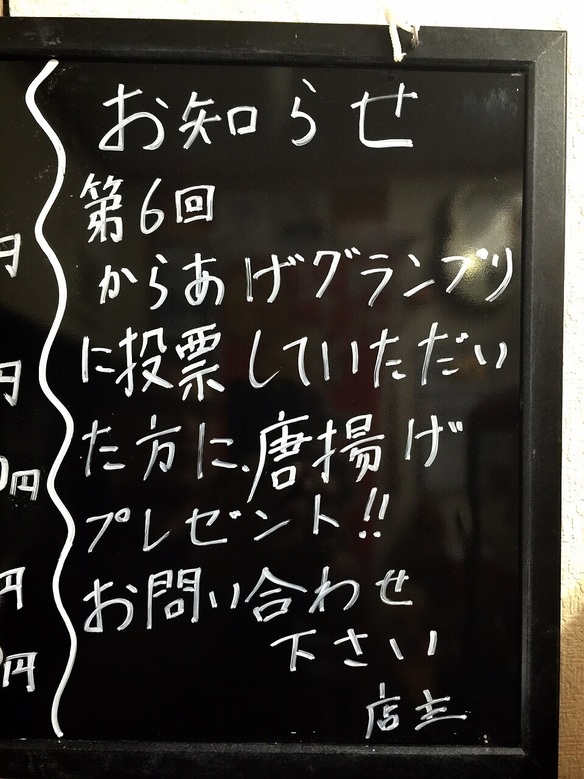 お知らせ
第6回
からあげグランプリ
に投票していただい
た方に、唐揚げ
プレゼント!!
お問い合わせ
下さい
店主
円
円
0円
円
円